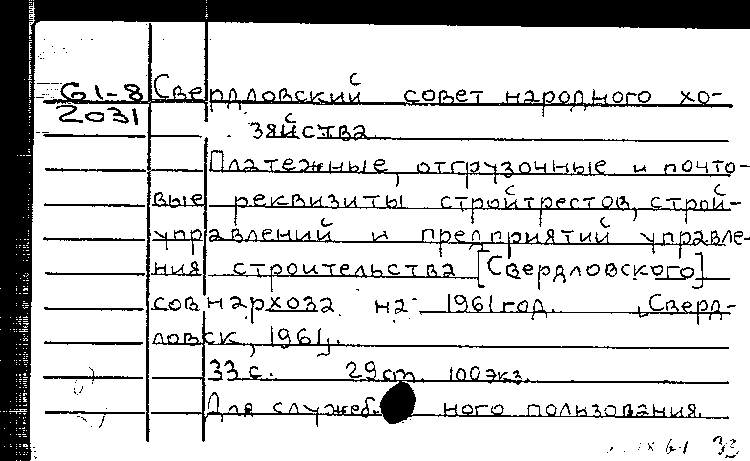 61-8 Свердловский совет народного хо-
2031 зяйства
Платежные, отгрузочные и почто-
вые реквизиты стройтрестов, строй-
управлений и предприятий управле-
ния строительства [Свердловского]
совнархоза на 1961 год. Сверд-
ловск, 1961.
33 с. 29 см. 100 экз.
Для служеб ного пользования.
61 33